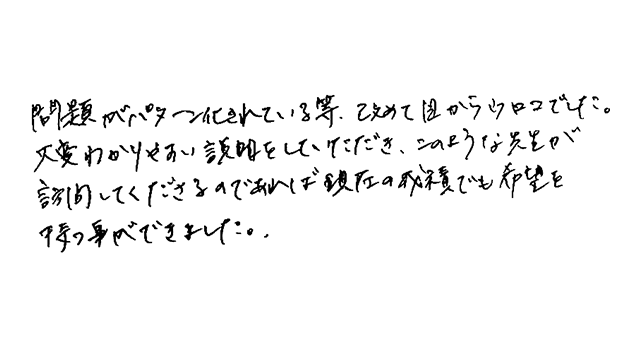 問題がパターン化されている等、改めて目からウロコでした。
大変わかりやすい説明をしていただき、このような先生が
訪問してくださるのであれば現在の成績でも希望を
持つ事ができました。